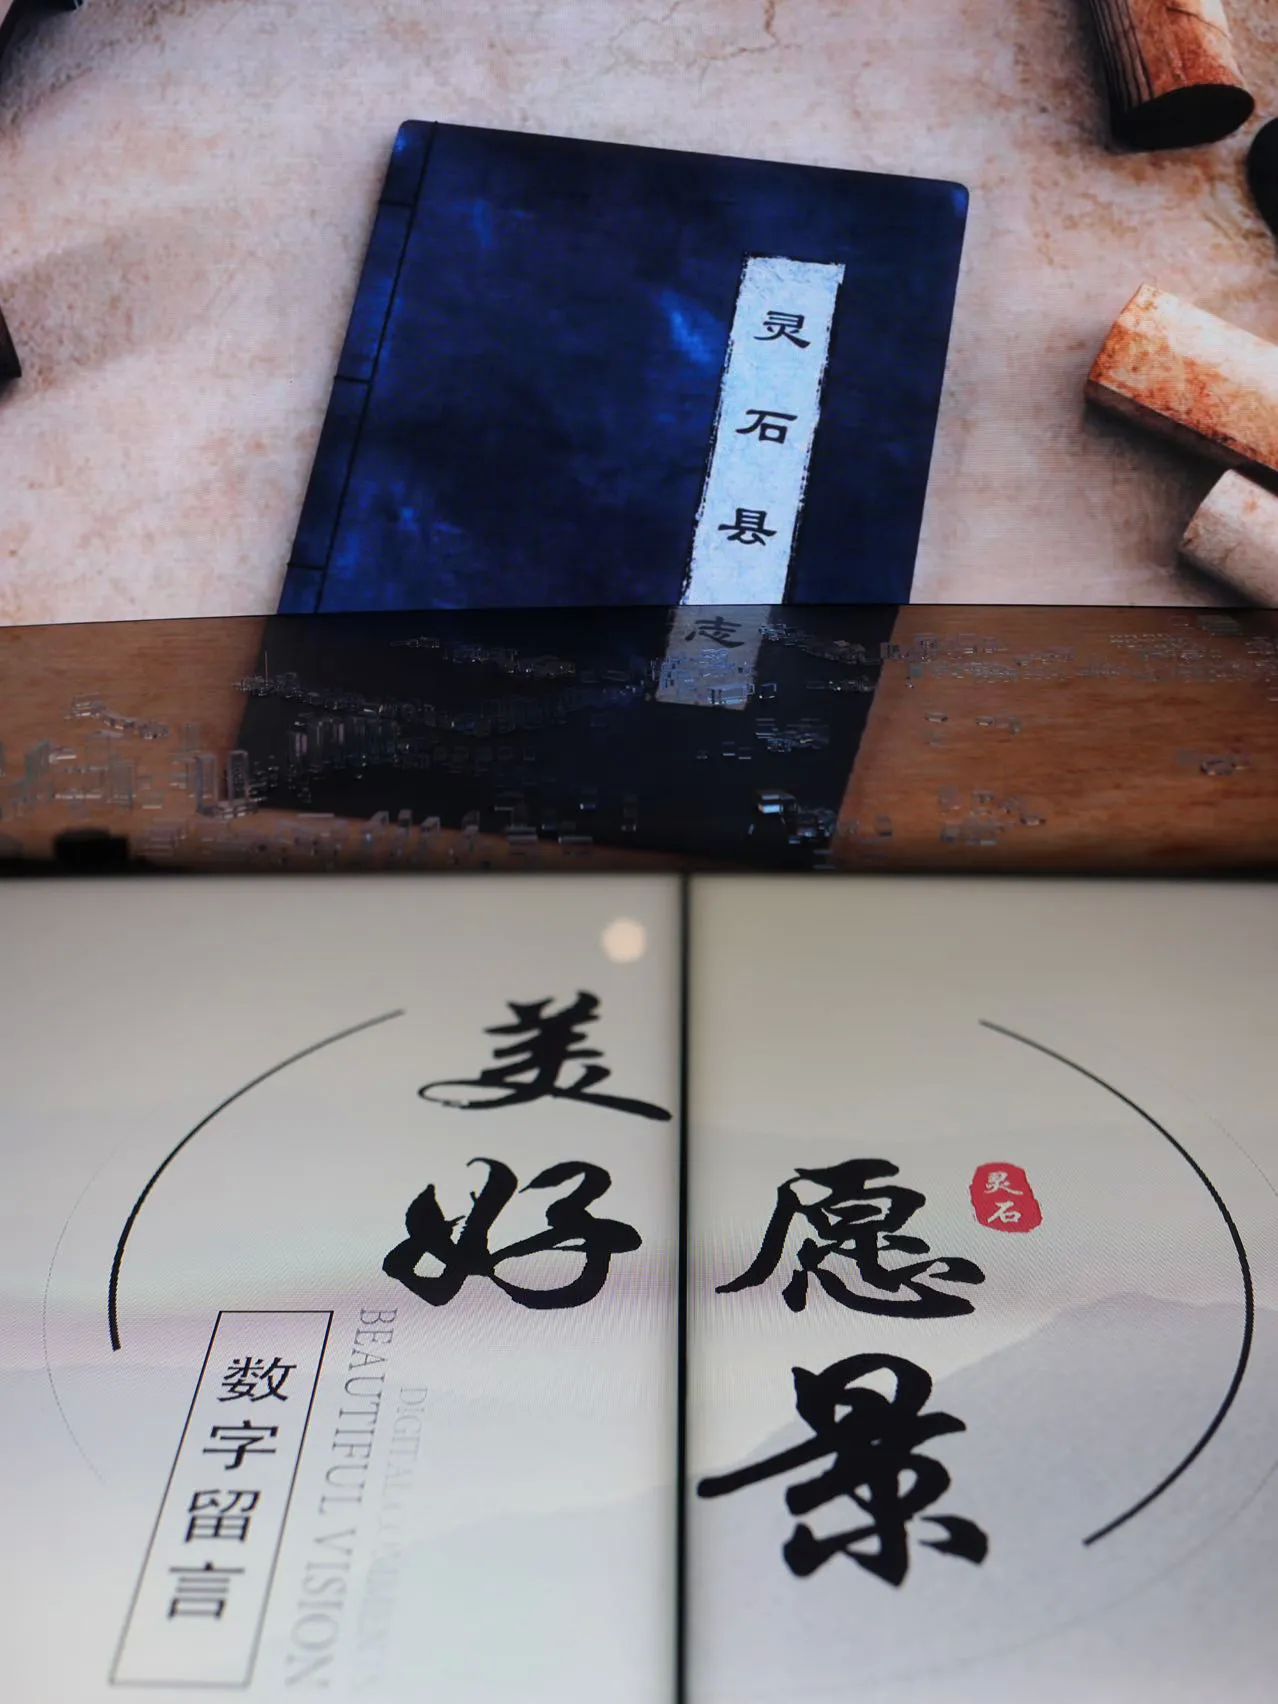 灵石县志
美好
愿景
灵石
数字留言
BEAUTIFUL VISION
DIGITAL COMMENTS